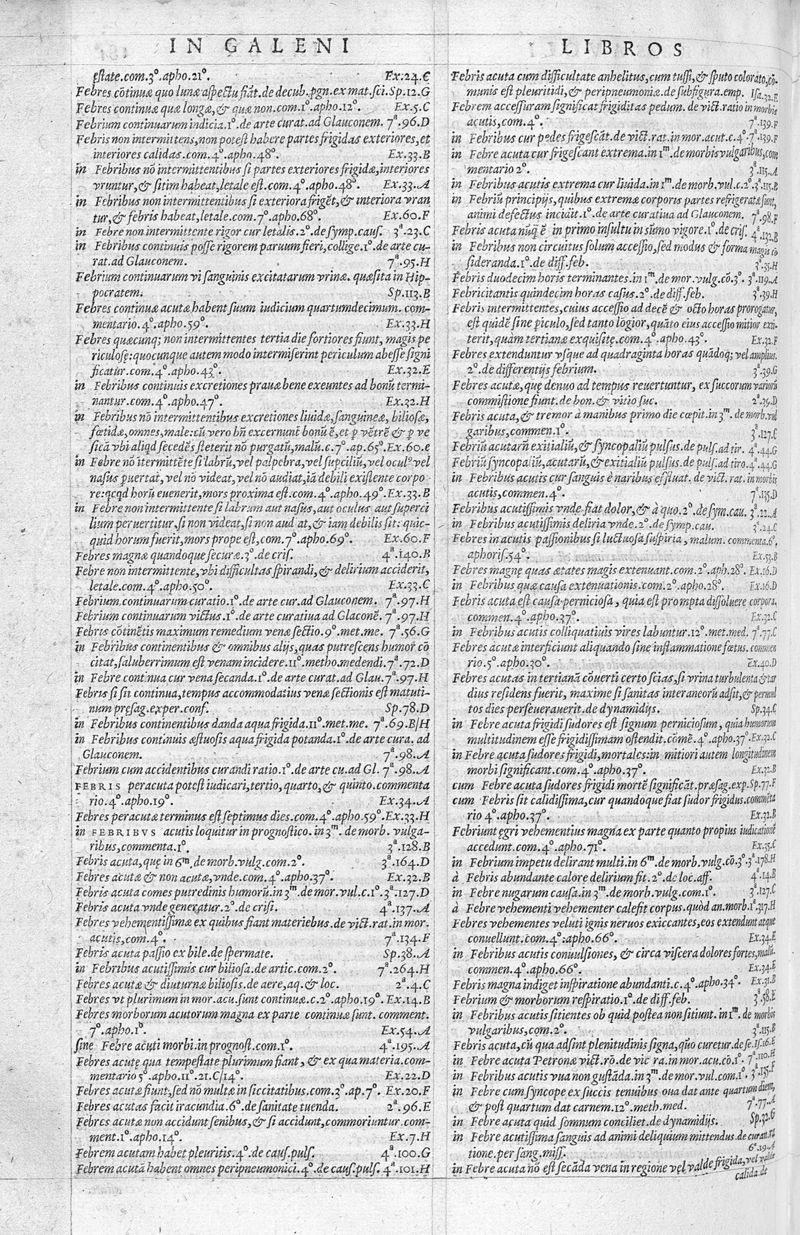 IN GALENI
æstate.com.3°.apho.21°. Ex.24.C
Febres cōtinuæ quo lunæ aspectu fiāt.de decub.pgn.ex mat.sci.Sp.12.G
Febres continuæ quæ longæ, & quæ non.com.1°.apho.12°. Ex.5.C
Febrium continuarum indicia.1°.de arte curat.ad Glauconem. 7ª.96.D
Febris non intermittens, non potest habere partes frigidas exteriores, et
interiores calidas.com.4°.apho.48°. Ex.33.B
in Febribus nō intermittentibus si partes exteriores frigidæ, interiores
vrantur, & sitim habeat, letale est.com.4°.apho.48°. Ex.33.A
in Febribus non intermittentibus si exteriora friget, & interiora vran
tur, & febris habeat, letale.com.7°.apho.68°. Ex.60.F
in Febre non intermittente rigor cur letalis.2°.de symp.caus. 3ª.23.C
in Febribus continuis posse rigorem paruum fieri, collige.1°.de arte cu-
rat.ad Glauconem. 7ª.95.H
Febrium continuarum vi sanguinis excitatarum vrinæ. quæsita in Hip
pocratem. Sp.113.B
Febres continuæ acutæ habent suum iudicium quartumdecimum. com-
mentario.4°.apho.59°. Ex.33.H
Febres quæcunq; non intermittentes tertia die fortiores fiunt, magis pe
riculose:quocunque autem modo intermiserint periculum abesse signi
ficatur.com.4°.apho.43°. Ex.32.E
in Febribus continuis excretiones prauæ bene exeuntes ad bonū termi-
nantur.com.4°.apho.47°. Ex.32.H
in Febribus nō intermittentibus excretiones liuidæ, sanguineæ, biliosæ,
fœtidæ, omnes, malæ:tū vero bn̄ excernunt bonū ē, et p vētrē & p ve
sicā vbi aliqd secedēs steterit nō purgatū, malū.c.7°.ap.65°.Ex.60.e
in Febre nō itermittēte si labrū, vel palpebra, vel supciliū, vel ocul° vel
nasus puertat, vel nō videat, vel nō audiat, iā debili existente corpo
re:qcqd horū euenerit, mors proxima est.com.4°.apho.49°.Ex.33.B
in Febre non intermittente si labrum aut nasus, aut oculus aut superci
lium peruertitur, si non videat, si non aud at, & iam debilis sit: quic-
quid horum fuerit, mors prope est, com.7°.apho.69°. Ex.60.F
Febres magnæ quandoque securæ.3°.de cris. 4ª.140.B
Febre non intermittente, vbi difficultas spirandi, & delirium acciderit,
letale.com.4°.apho.50°. Ex.33.C
Febrium continuarum curatio.1°.de arte cur.ad Glauconem. 7ª.97.H
Febrium continuarum victus.1°.de arte curatiua ad Glaconē. 7ª.97.H
Febris cōtinētis maximum remedium venæ sectio.9°.met.me. 7ª.56.G
in Febribus continentibus & omnibus alijs, quas putrescens humor cō
citat, saluberrimum est venam incidere.11°.metho.medendi.7ª.72.D
in Febre continua cur vena secanda.1°.de arte curat.ad Glau.7ª.97.H
Febris si sit continua, tempus accommodatius venæ sectionis est matuti-
num præsag.exper.conf. Sp.78.D
in Febribus continentibus danda aqua frigida.11°.met.me. 7ª.69.B/H
in Febribus continuis æstuosis aqua frigida potanda.1°.de arte cura. ad
Glauconem. 7ª.98.A
Febrium cum accidentibus curandi ratio.1°.de arte cu.ad Gl. 7ª.98.A
FEBRIS peracuta potest iudicari, tertio, quarto, & quinto.commenta
rio.4°.apho.19°. Ex.34.A
Febres peracutæ terminus est septimus dies.com.4°.apho.59°.Ex.33.H
in FEBRIBVS acutis loquitur in prognostico.in 3m.de morb. vulga-
ribus, commenta.1°. 3ª.128.B
Febris acuta, quę in 6m.de morb.vulg.com.2°. 3ª.164.D
Febres acutæ & non acutæ, vnde.com.4°.apho.37°. Ex.32.B
Febris acuta comes putredinis humorū.in 3m.de mor.vul.c.1°.3ª.127.D
Febris acuta vnde generatur.2°.de cris. 4ª.137.A
Febres vehementissimæ ex quibus fiant materiebus.de vict.rat.in mor.
acutis, com.4°. 7ª.134.F
Febris acuta passio ex bile.de spermate. Sp.38.A
in Febribus acutissimis cur biliosa.de artic.com.2°. 7ª.264.H
Febres acutæ & diuturnæ biliosis.de aere, aq.& loc. 2ª.4.C
Febres vt plurimum in mor.acu.sunt continuæ.c.2°.apho.19°.Ex.14.B
Febres morborum acutorum magna ex parte continuæ sunt. comment.
7°.apho.1°. Ex.54.A
sine Febre acuti morbi.in prognost.com.1°. 4ª.195.A
Febres acutę qua tempestate plurimum fiant, & ex qua materia.com-
mentario 3°.apho.11°.21.C/14°. Ex.22.D
Febres acutæ fiunt, sed nō multæ in siccitatibus.com.3°.ap.7°. Ex.20.F
Febres acutas facit iracundia.6°.de sanitate tuenda. 2ª.96.E
Febres acutæ non accidunt senibus, & si accidunt, commoriuntur.com-
ment.1°.apho.14°. Ex.7.H
Febrem acutam habet pleuritis.4°.de caus.puls. 4ª.100.G
Febrem acutā habent omnes peripneumonici.4°.de caus.puls. 4ª.101.H
LIBROS
Febris acuta cum difficultate anhelitus, cum tussi, & sputo colorato, cō-
munis est pleuritidi, & peripneumoniæ.de subfigura.emp. Isa.32.E
Febrem accessuram significat frigiditas pedum. de vict.ratio in morbis
acutis, com.4°. 7ª.139.F
in Febribus cur pedes frigescāt.de vict.rat.in mor.acut.c.4°.7ª.139.F
in Febre acuta cur frigescant extrema.in 1m.de morbis vulgaribus, com
mentario 2°. 3ª.115.A
in Febribus acutis extrema cur liuida.in 1m.de morb.vul.c.2°.3ª.115.B
in Febriū principijs, quibus extremæ corporis partes refrigeratæ sunt,
animi defectus incidit.1°.de arte curatiua ad Glauconem. 7ª.98.F
Febris acuta nūq̄ ē in primo insultu in sūmo vigore.1°.de cris. 4ª.132.B
in Febribus non circuitus solum accessio, sed modus & forma magis cō
sideranda.1°.de diff.feb. 3ª.35.H
Febris duodecim horis terminantes.in 1m.de mor.vulg.cō.3°. 3ª.119.A
Febricitantis quindecim horas casus.2°.de diff.feb. 3ª.39.H
Febris intermittentes, cuius accessio ad decē & octo horas prorogatur,
est quidē sine piculo, sed tanto lōgior, quāto eius accessio mitior exti-
terit, quàm tertianæ exquisitę.com.4°.apho.43°. Ex.32.F
Febres extenduntur vsque ad quadraginta horas quādoq; vel amplius.
2°.de differentijs febrium. 3ª.39.G
Febres acutæ, quę denuo ad tempus reuertuntur, ex succorum variorū
commistione fiunt.de bon.& vitio suc. 2ª.35.D
Febris acuta, & tremor à manibus primo die cœpit.in 3m. de morb.vul
garibus, commen.1°. 3ª.127.C
Febriū acutarū exitialiū, & syncopaliū pulsus.de puls.ad tir. 4ª.44.G
Febriū syncopaliū, acutarū, & exitialiū pulsus.de puls.ad tiro.4ª.44.G
in Febribus acutis cur sanguis è naribus effluat. de vict. rat.in morbis
acutis, commen.4°. 7ª.135.D
Febribus acutissimis vnde fiat dolor, & à quo.2°.de sym.cau. 3ª.22.A
in Febribus acutissimis deliria vnde.2°.de symp.cau. 3ª.24.C
Febres in acutis passionibus si luctuosa suspiria, malum. commenta.6°,
aphoris.54°. Ex.53.B
Febres magnę quas ætates magis extenuant.com.2°.aph.28°. Ex.16.D
in Febribus quæ causa extenuationis.com.2°.apho.28°. Ex.16.D
Febris acuta est causa perniciosa, quia est prompta dissoluere corpora.
commen.4°.apho.37°. Ex.32.C
in Febribus acutis colliquatiuis vires labuntur.12°.met.med. 7ª.77.C
Febres acutæ interficiunt aliquando sine inflammatione fœtus. commen
rio.5°.apho.30°. Ex.40.D
Febres acutas in tertianā cōuerti certo scias, si vrina turbulenta & tar
dius residens fuerit, maxime si sanitas interaneorū adsit, & permul
tos dies perseuerauerit.de dynamidijs. Sp.34.C
in Febre acuta frigidi sudores est signum perniciosum, quia humorum
multitudinem esse frigidissimam ostendit.cōmē.4°.apho.37°.Ex.32.C
in Febre acuta sudores frigidi, mortales:in mitiori autem longitudinem
morbi significant.com.4°.apho.37°. Ex.32.B
cum Febre acuta sudores frigidi mortē significāt.præsag.exp.Sp.77.F
cum Febris sit calidissima, cur quandoque fiat sudor frigidus.commēta
rio 4°.apho.37°. Ex.32.B
Febriunt ęgri vehementius magna ex parte quanto propius iudicatione
accedunt.com.4°.apho.71°. Ex.35.C
in Febrium impetu delirant multi.in 6m.de morb.vulg.cō.3°.3ª.178.H
à Febris abundante calore delirium fit.2°.de loc.aff. 4ª.14.B
in Febre nugarum causa.in 3m.de morb.vulg.com.1°. 3ª.127.C
à Febre vehementi vehementer calefit corpus.quòd an.morb.1°.317.H
Febres vehementes veluti ignis neruos exiccantes, eos extendunt atque
conuellunt.com.4°:apho.66°. Ex.34.E
in Febribus acutis conuulsiones, & circa viscera dolores fortes, mali.
commen.4°.apho.66°. Ex.34.E
Febris magna indiget inspiratione abundanti.c.4°.apho.34°. Ex.31.B
Febrium & morborum respiratio.1°.de diff.feb. 3ª.58.E
in Febribus acutis sitientes ob quid postea non sitiunt. in 1m.de morbis
vulgaribus, com.2°. 3ª.115.B
Febris acuta, cū qua adsint plenitudinis signa, quo curetur.de se.Is.16.E
in Febre acuta Petronæ vict.rō.de vic ra.in mor.acu.cō.1°. 7ª.110.H
in Febribus acutis vua non gustāda.in 3m.de mor.vul.com.1°. 3ª.135.F
in Febre cum syncope ex succis tenuibus oua dat ante quartum diem,
& post quartum dat carnem.12°.meth.med. 7ª.77.A
in Febre acuta quid somnum conciliet.de dynamidijs. Sp.32.G
in Febre acutissima sanguis ad animi deliquium mittendus.de curan.ra
tione.per sang.miss. 6ª.19.A
in Febre acuta nō est secāda vena in regione vel valde frigida, vel valde
calida.de